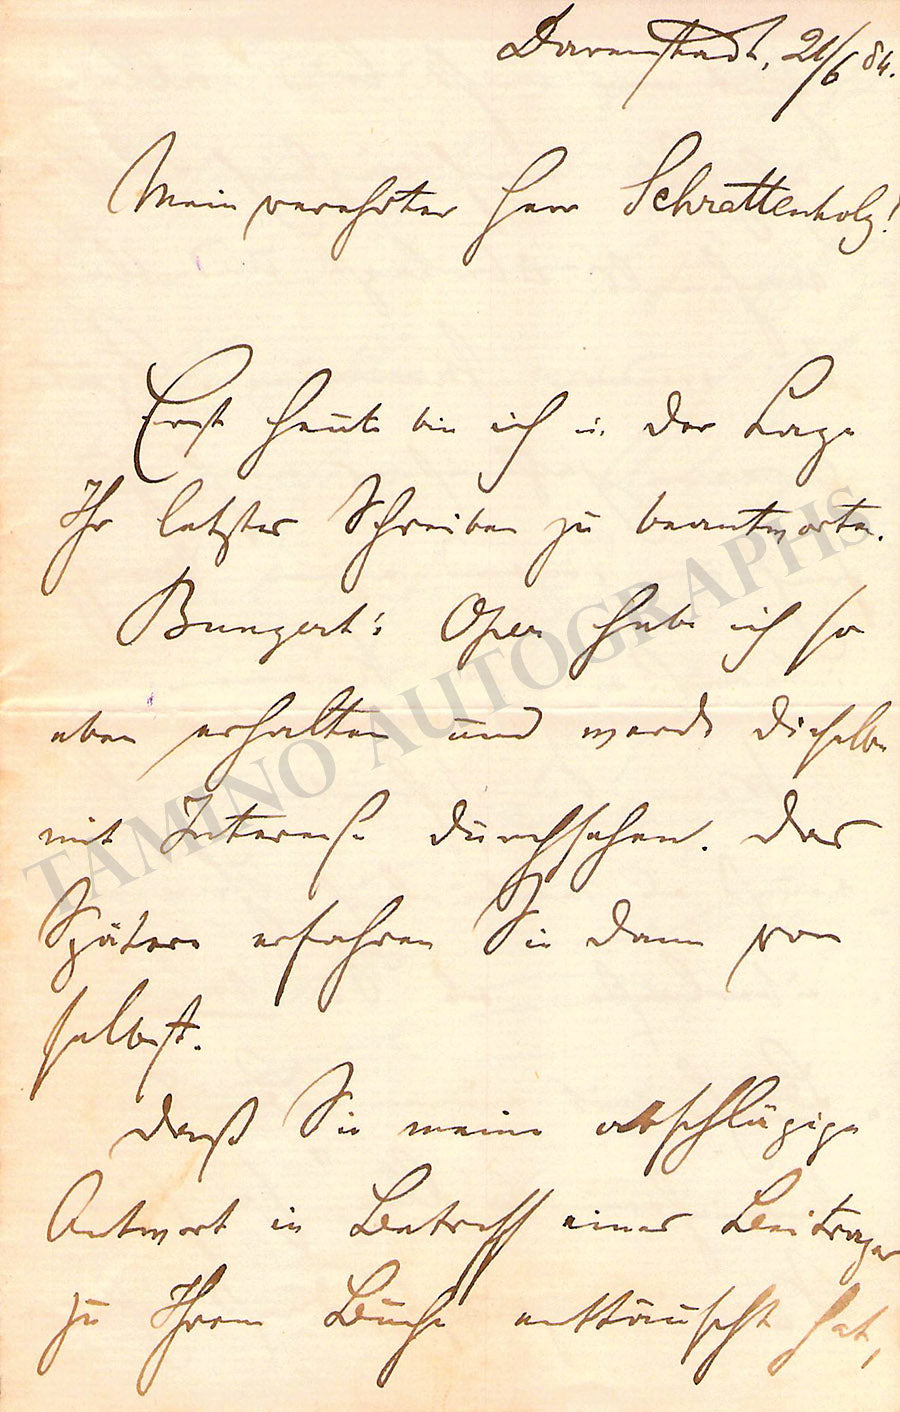 Darmstadt, 21/6 84.
Mein verehrter Herr Schrattenholz!
Erst heute bin ich in der Lage
Ihr letztes Schreiben zu beantworten.
Bungert's Oper habe ich so
eben erhalten und werde dieselbe
mit Interesse durchsehen. Das
Spätere erfahren Sie dann von
selbst.
Daß Sie meine abschlägige
Antwort in Betreff eines Beitrages
zu Ihrem Buche enttäuscht hat,
TAMINO AUTOGRAPHS